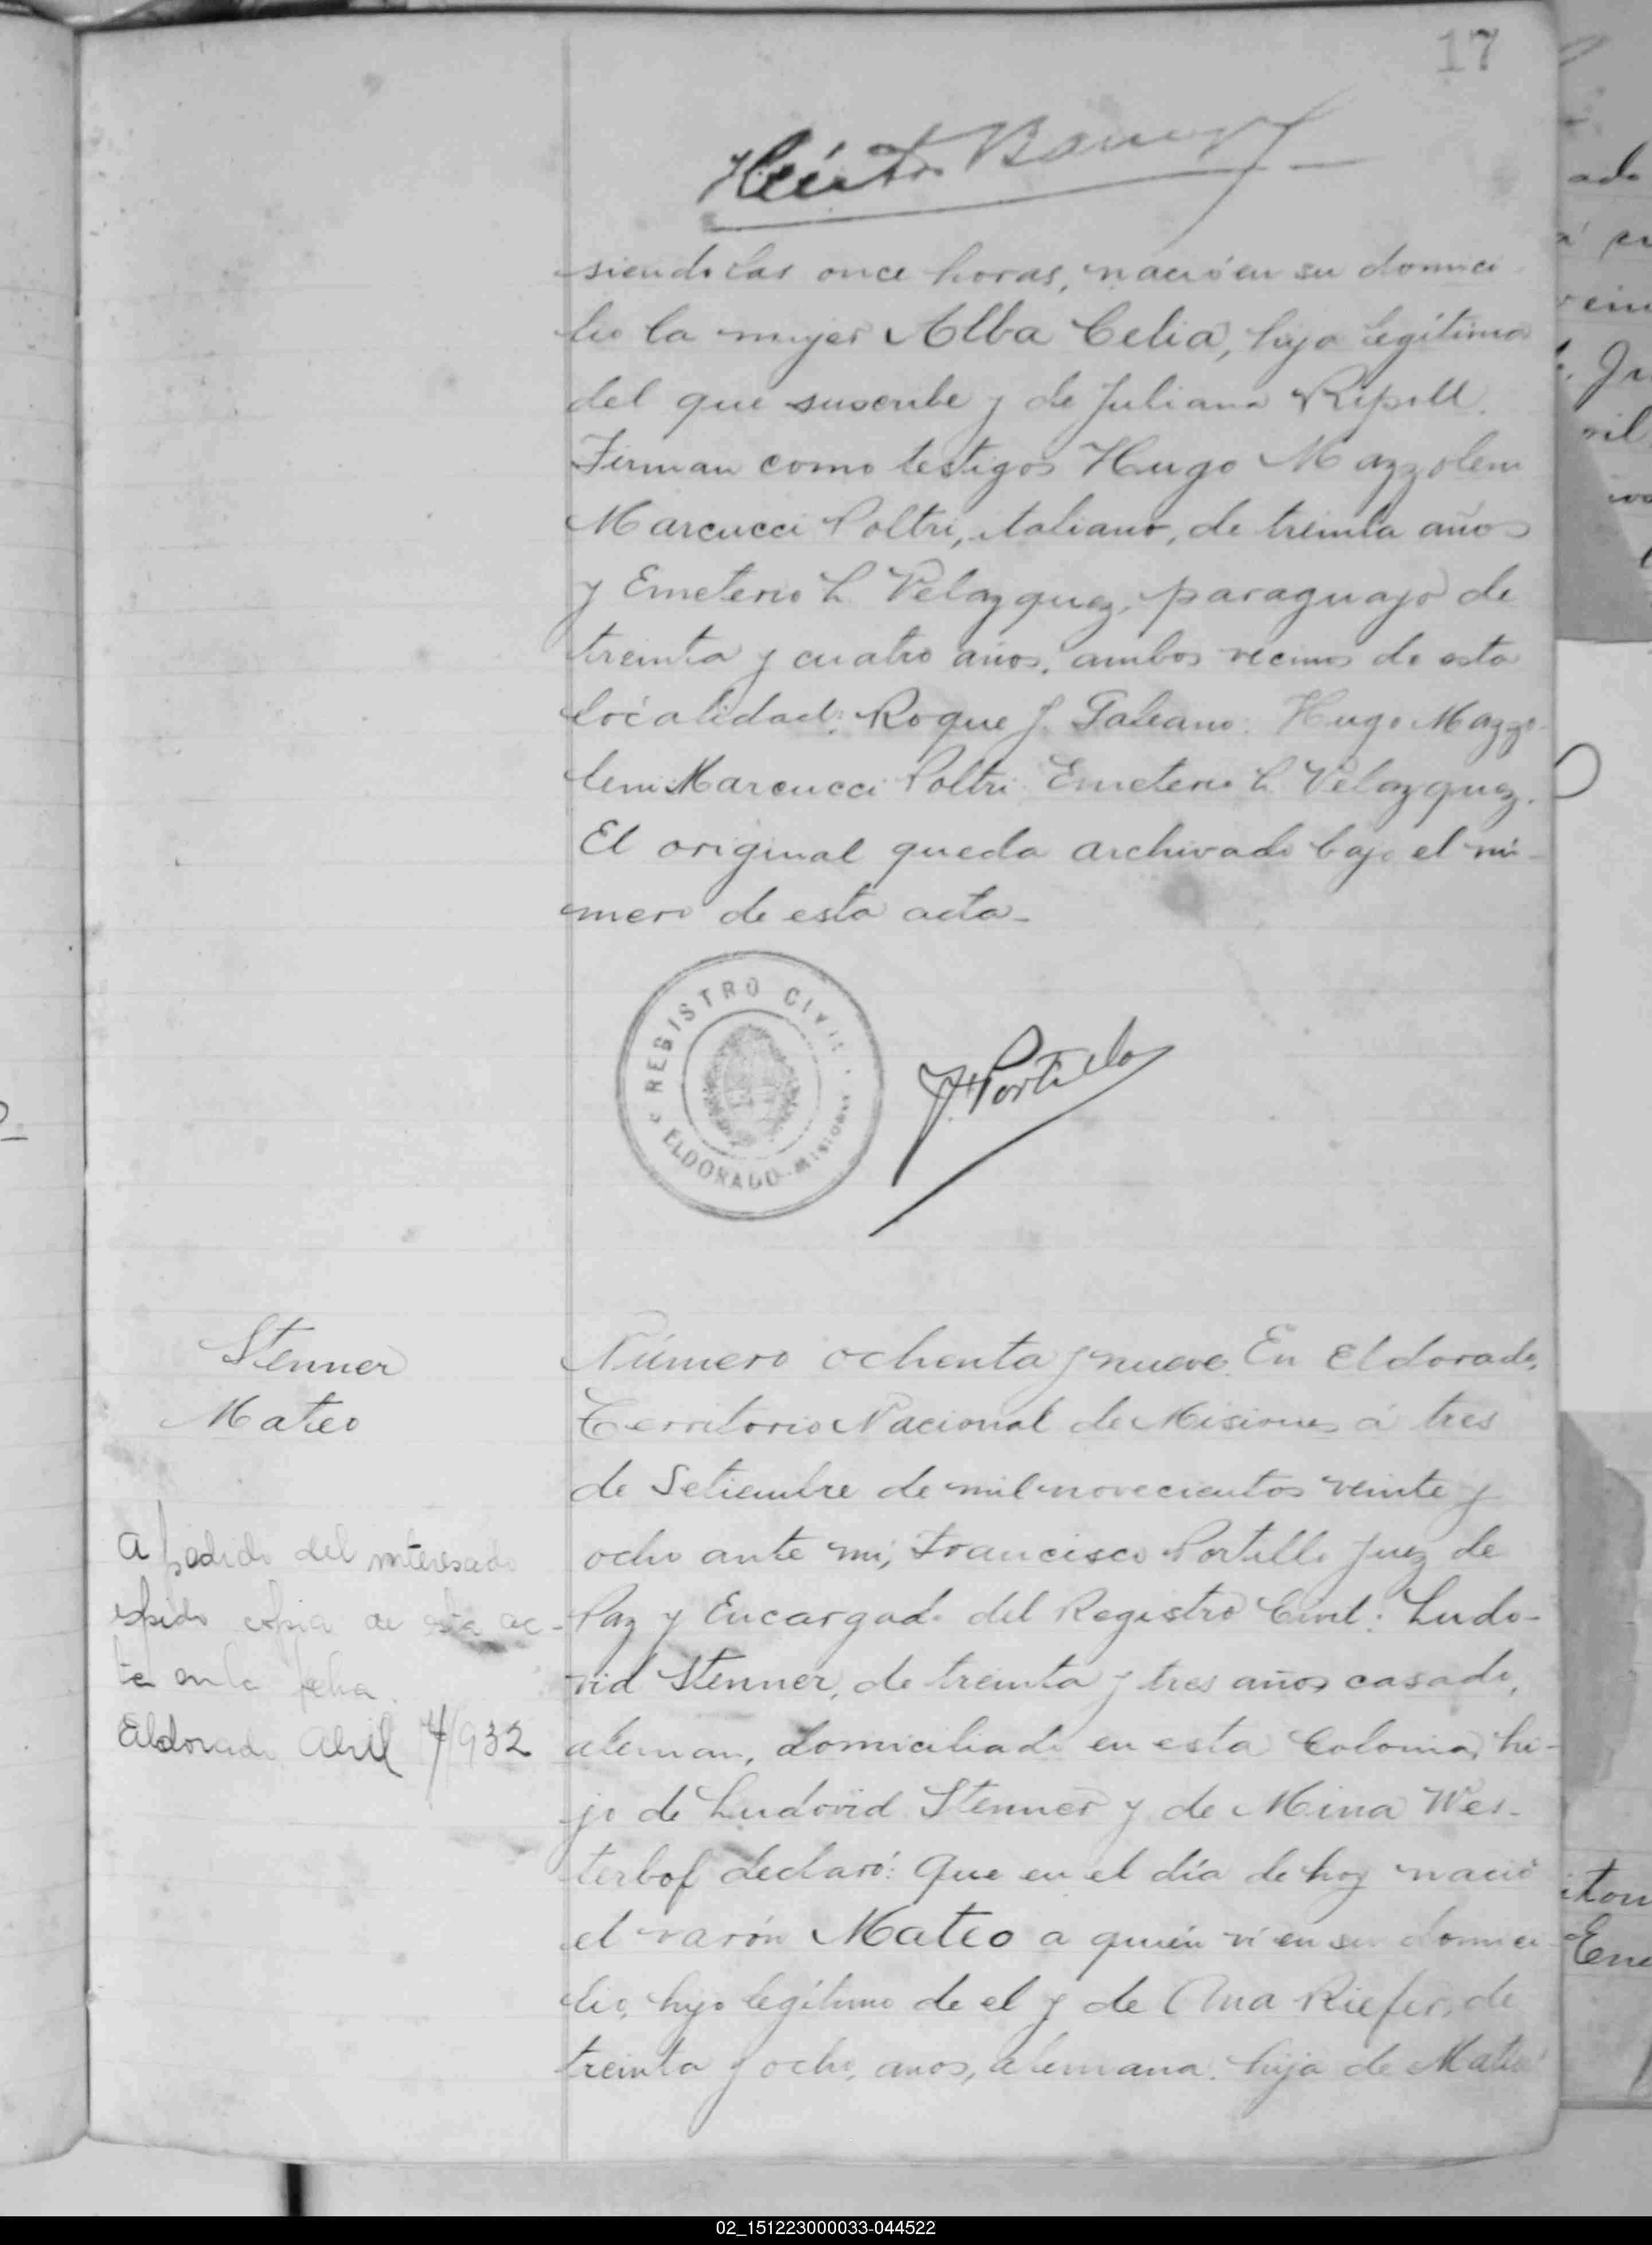 17
siendo las once horas, nació en su domici
lio la mujer Alba Celia, hija legítima
del que suscribe y de Juliana Ripoll.
Firman como testigos Hugo Mazzoleni
Marcucci Poltri, italiano, de treinta años
y Emeterio L. Velazquez, paraguayo de
treinta y cuatro años, ambos vecinos de esta
localidad: Roque J. Galeano. Hugo Mazzo-
leni Marcucci Poltri. Emeterio L. Velazquez.
El original queda archivado bajo el nú-
mero de esta acta-
REGISTRO CIVIL
ELDORADO - MISIONES
J. Portillo
Stenner
Mateo
A pedido del interesado
espido copia de esta ac-
ta en la fecha.
Eldorado Abril 4/932
Número ochenta y nueve. En Eldorado,
Territorio Nacional de Misiones á tres
de Setiembre de mil novecientos veinte y
ocho ante mi, Francisco Portillo Juez de
Paz y Encargado del Registro Civil: Ludo-
vid Stenner, de treinta y tres años casado,
aleman, domiciliado en esta Colonia, hi-
jo de Ludovid Stenner y de Mina Wes-
terbof declaró: Que en el día de hoy nació
el varón Mateo a quien ví en su domici
lio, hijo legítimo de el y de Ana Riefer, de
treinta y ocho, anos, alemana. hija de Mateo